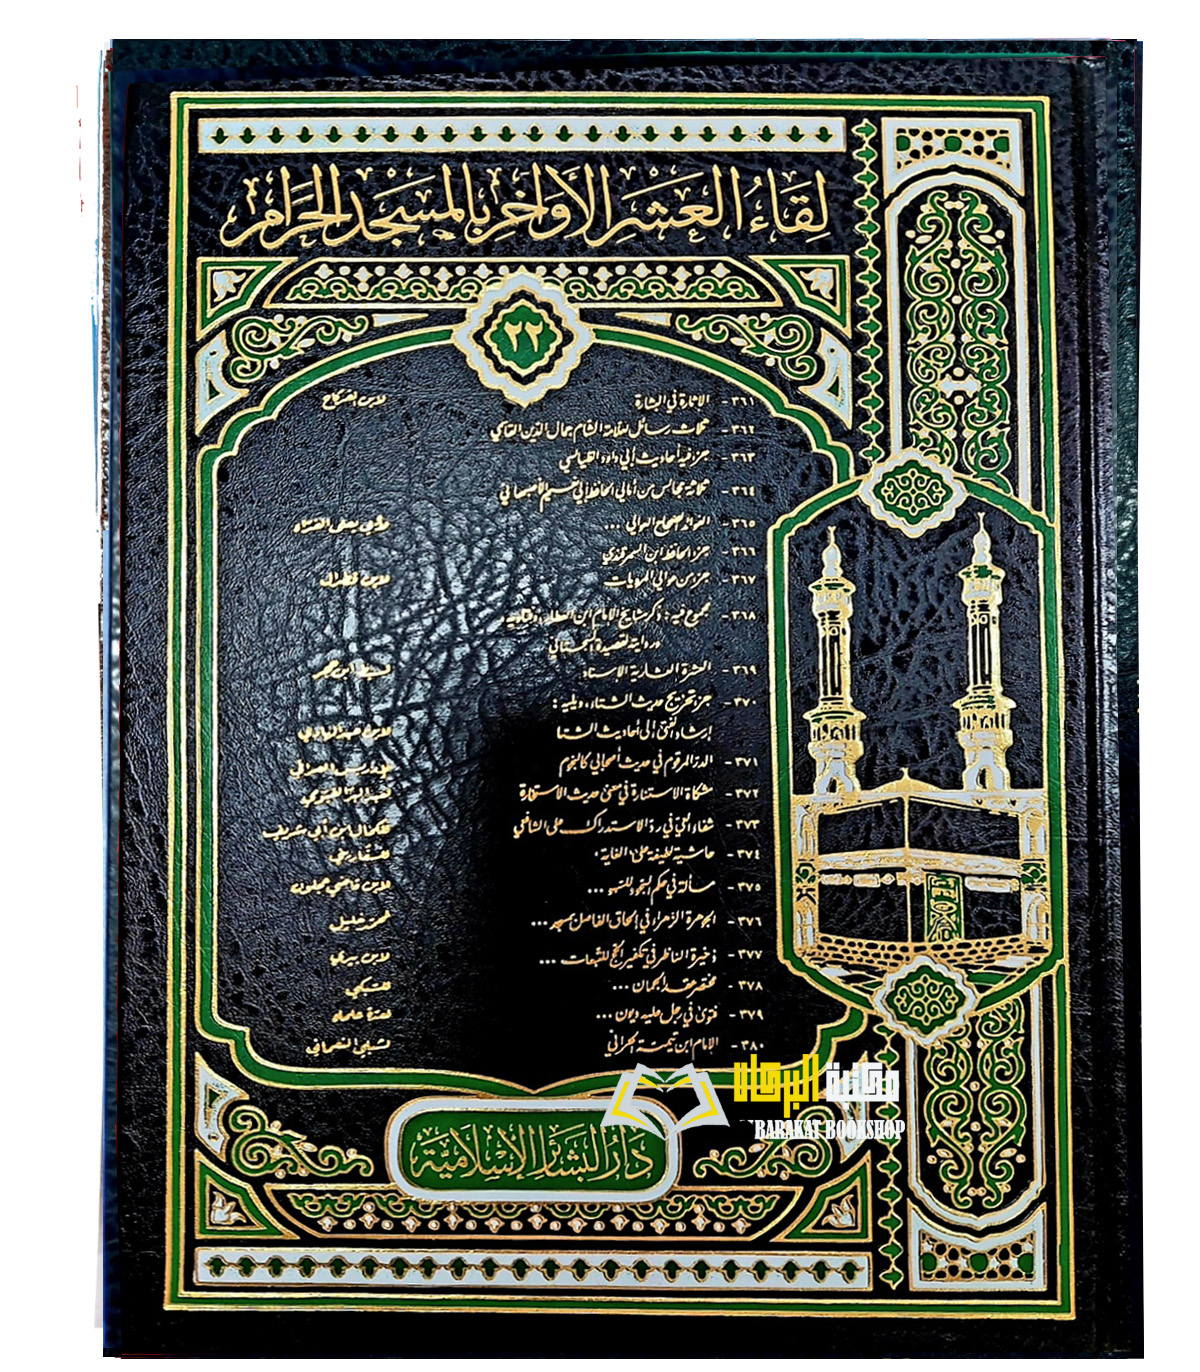 لِقَاءُ العَشْرِ الأَوَاخِرِ بِالمَسْجِدِ الحَرَامِ
٢٢
٣٦١ - الإنارة في البشارة
٣٦٢ - ثلاث رسائل لعلامة الشام جمال الدين القاسمي
٣٦٣ - جزء فيه أحاديث أبي داود الطيالسي
٣٦٤ - ثلاثة مجالس من أمالي الحافظ أبي نعيم الأصبهاني
٣٦٥ - الفوائد الصحاح العوالي ...
٣٦٦ - جزء الحافظ ابن السمرقندي
٣٦٧ - جزء من عوالي
٣٦٨ - مجموع فيه: ذكر مشايخ الإمام ابن العطار وفتاويه،
٣٦٩ - العشرة العشارية الإسناد
٣٧٠ - جزء تخريج حديث الشتاء، ويليه:
إرشاد الفتى إلى أحاديث الشتا لابن عبد الهادي
٣٧١ - الدر المرقوم في حديث أصحابي كالنجوم
٣٧٢ - مشكاة الاستنارة في معنى حديث الاستخارة
٣٧٣ - شفاء العي في رد الاستدراك على الشافعي
٣٧٤ - حاشية لطيفة على الغاية
٣٧٥ - مسألة في حكم السجود للسهو ... لابن قاضي عجلون
٣٧٦ - الجوهرة الزهراء في إلحاق الفاصل بمسجد ... محمد خليل
٣٧٧ - ذخيرة الناظر في تكفير الحج للتبعات ... لابن بيري
٣٧٨ - مختصر عقد الجمان ...
٣٧٩ - فتوى في رجل عليه ديون ... لعدة علماء
٣٨٠ - الإمام ابن تيمية الحراني لشبلي النعماني
مكتبة البركات
BARAKAT BOOKSHOP
دَارُ البَشَائِرِ الإِسْلَامِيَّة